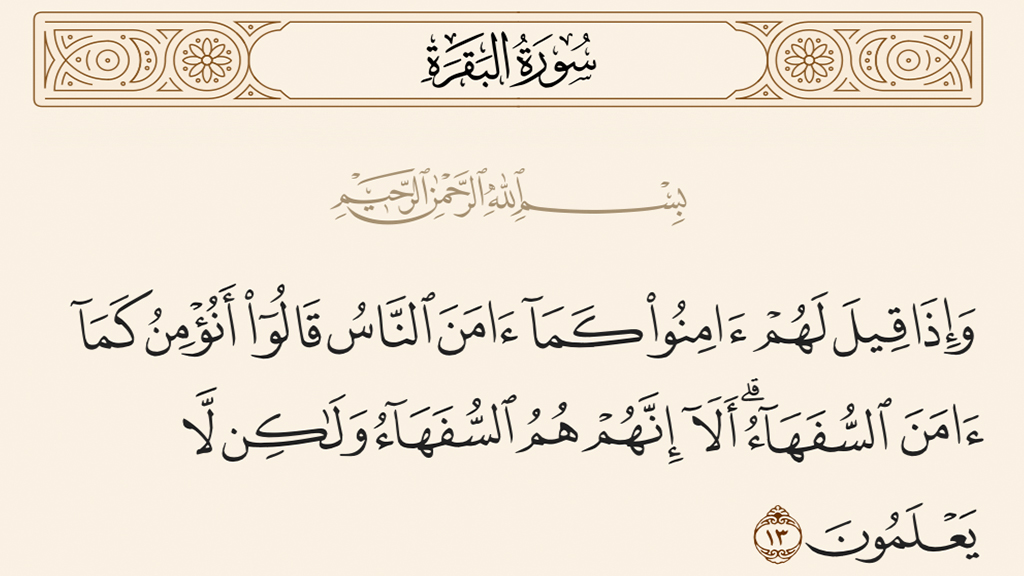 سُورَةُ البَقَرَةِ
بِسْمِ ٱللَّهِ ٱلرَّحْمَٰنِ ٱلرَّحِيمِ
وَإِذَا قِيلَ لَهُمْ ءَامِنُوا۟ كَمَآ ءَامَنَ ٱلنَّاسُ قَالُوٓا۟ أَنُؤْمِنُ كَمَآ
ءَامَنَ ٱلسُّفَهَآءُ ۗ أَلَآ إِنَّهُمْ هُمُ ٱلسُّفَهَآءُ وَلَـٰكِن لَّا
يَعْلَمُونَ ١٣